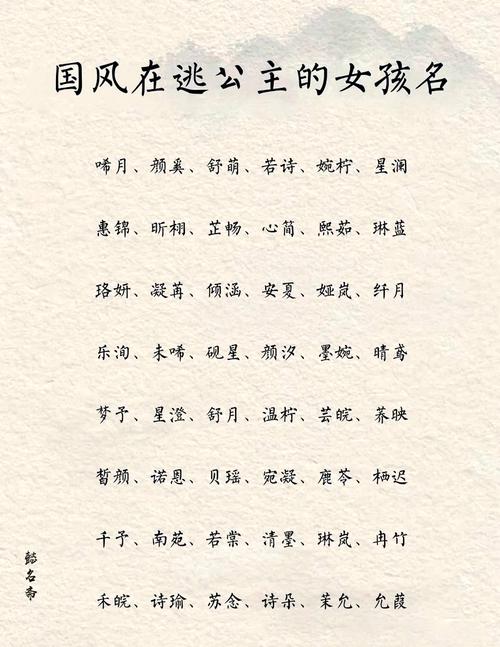 国风在逃公主的女孩名
唏月、颜奚、舒萌、若诗、婉柠、星澜
惠锦、昕栩、芷畅、心简、熙茹、琳蓝
珞妍、凝苒、倾涵、安夏、娅岚、纤月
乐洵、未唏、砚星、颜汐、墨婉、晴鸢
梦予、星澄、舒月、温柠、芸皖、荞映
皙颜、诺恩、贝瑶、宛凝、鹿苓、栖迟
千予、南苑、若棠、清墨、琳岚、冉竹
禾皖、诗瑜、苏念、诗朵、茉允、允葭
懿名斋